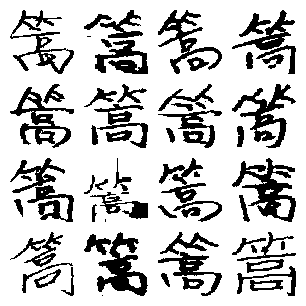 篙篙篙篙
篙篙篙篙
篙篙篙篙
篙篙篙篙